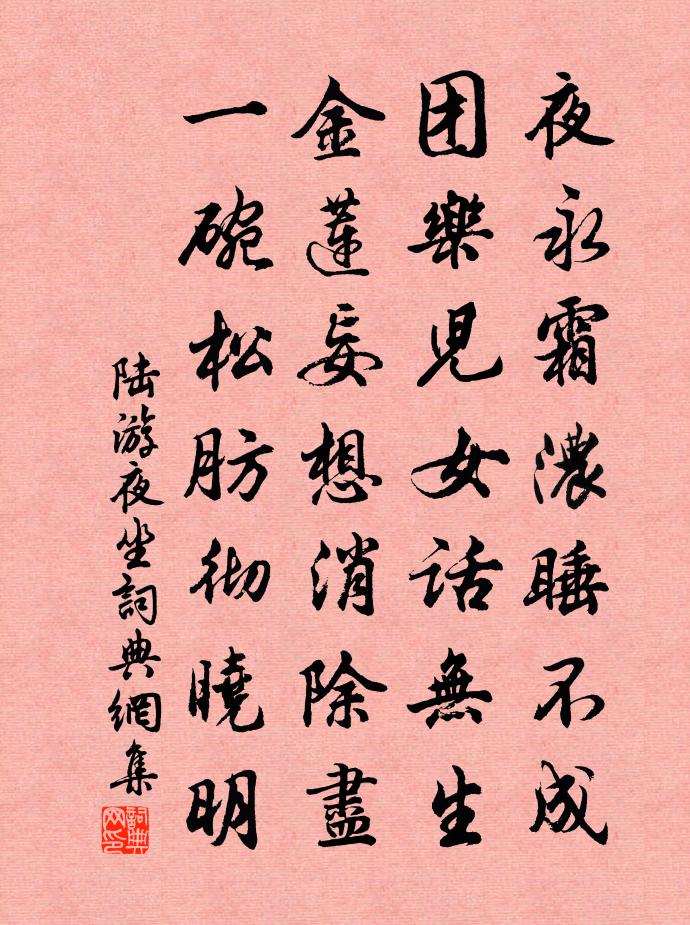 夜永霜濃睡不成
团樂児女話無生
金蓮妄想消除盡
一碗松肪彻曉明
陆游夜坐詞典網集
詞典网印